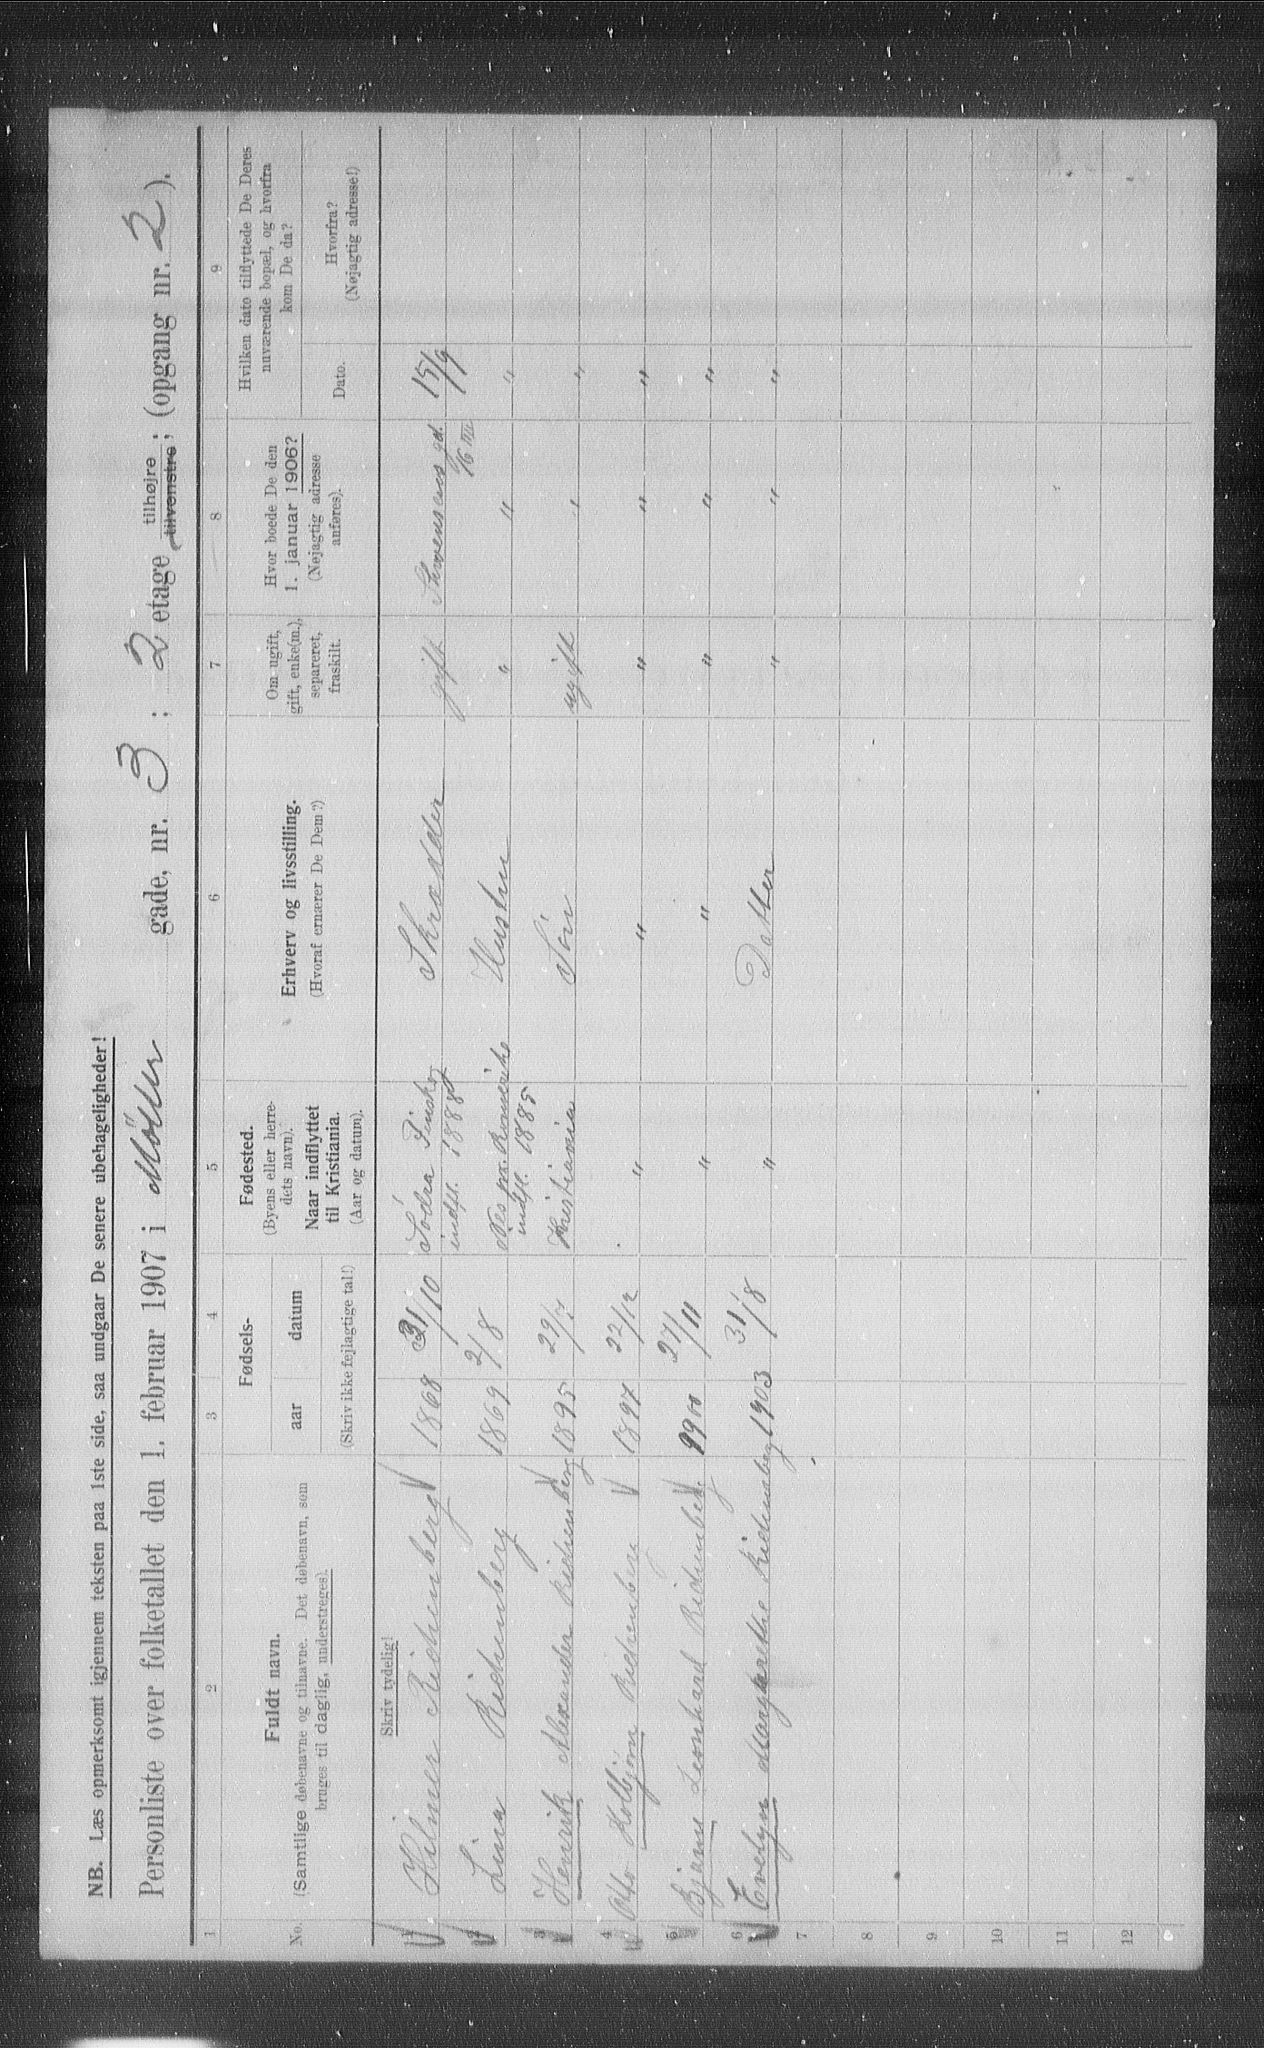 NB. Læs opmerksomt igjennem teksten paa 1ste side, saa undgaar De senere ubehageligheder!
Personliste over folketallet den 1. februar 1907 i Möller gade, nr. 3 ; 2 etage tilhøjre tilvenstre ; (opgang nr. 2 ).
1 2 3 4 5 6 7 8 9
No.
Fuldt navn.
(Samtlige døbenavne og tilnavne. Det døbenavn, som
bruges til daglig, understreges).
Fødsels-
aar datum
(Skriv ikke fejlagtige tal!)
Fødested.
(Byens eller herre-
dets navn).
Naar indflyttet
til Kristiania.
(Aar og datum).
Erhverv og livsstilling.
(Hvoraf ernærer De Dem?)
Om ugift,
gift, enke(m.),
separeret,
fraskilt.
Hvor boede De den
1. januar 1906?
(Nøjagtig adresse
anføres).
Hvilken dato tilflyttede De Deres
nuværende bopæl, og hvorfra
kom De da?
Dato.
Hvorfra?
(Nøjagtig adresse!)
Skriv tydelig!
1 Hilmer Richenberg 1868 31/10 Södra Finskog Skrædder gift gd. 15/9
indfl. 1888 16 III
2 Lina Richenberg 1869 2/8 Nes Romerike Hustru " " "
indfl. 1885
3 Henrik Alexander Richenberg 1895 29/7 Kristiania Sön ugift " "
4 Otto Kolbjörn Richenberg 1897 22/12 " " " " "
5 Bjarne Leonhard Richenberg 1900 27/11 " " " " "
6 Evelyn Margarethe Richenberg 1903 31/8 " Datter " " "
7
8
9
10
11
12